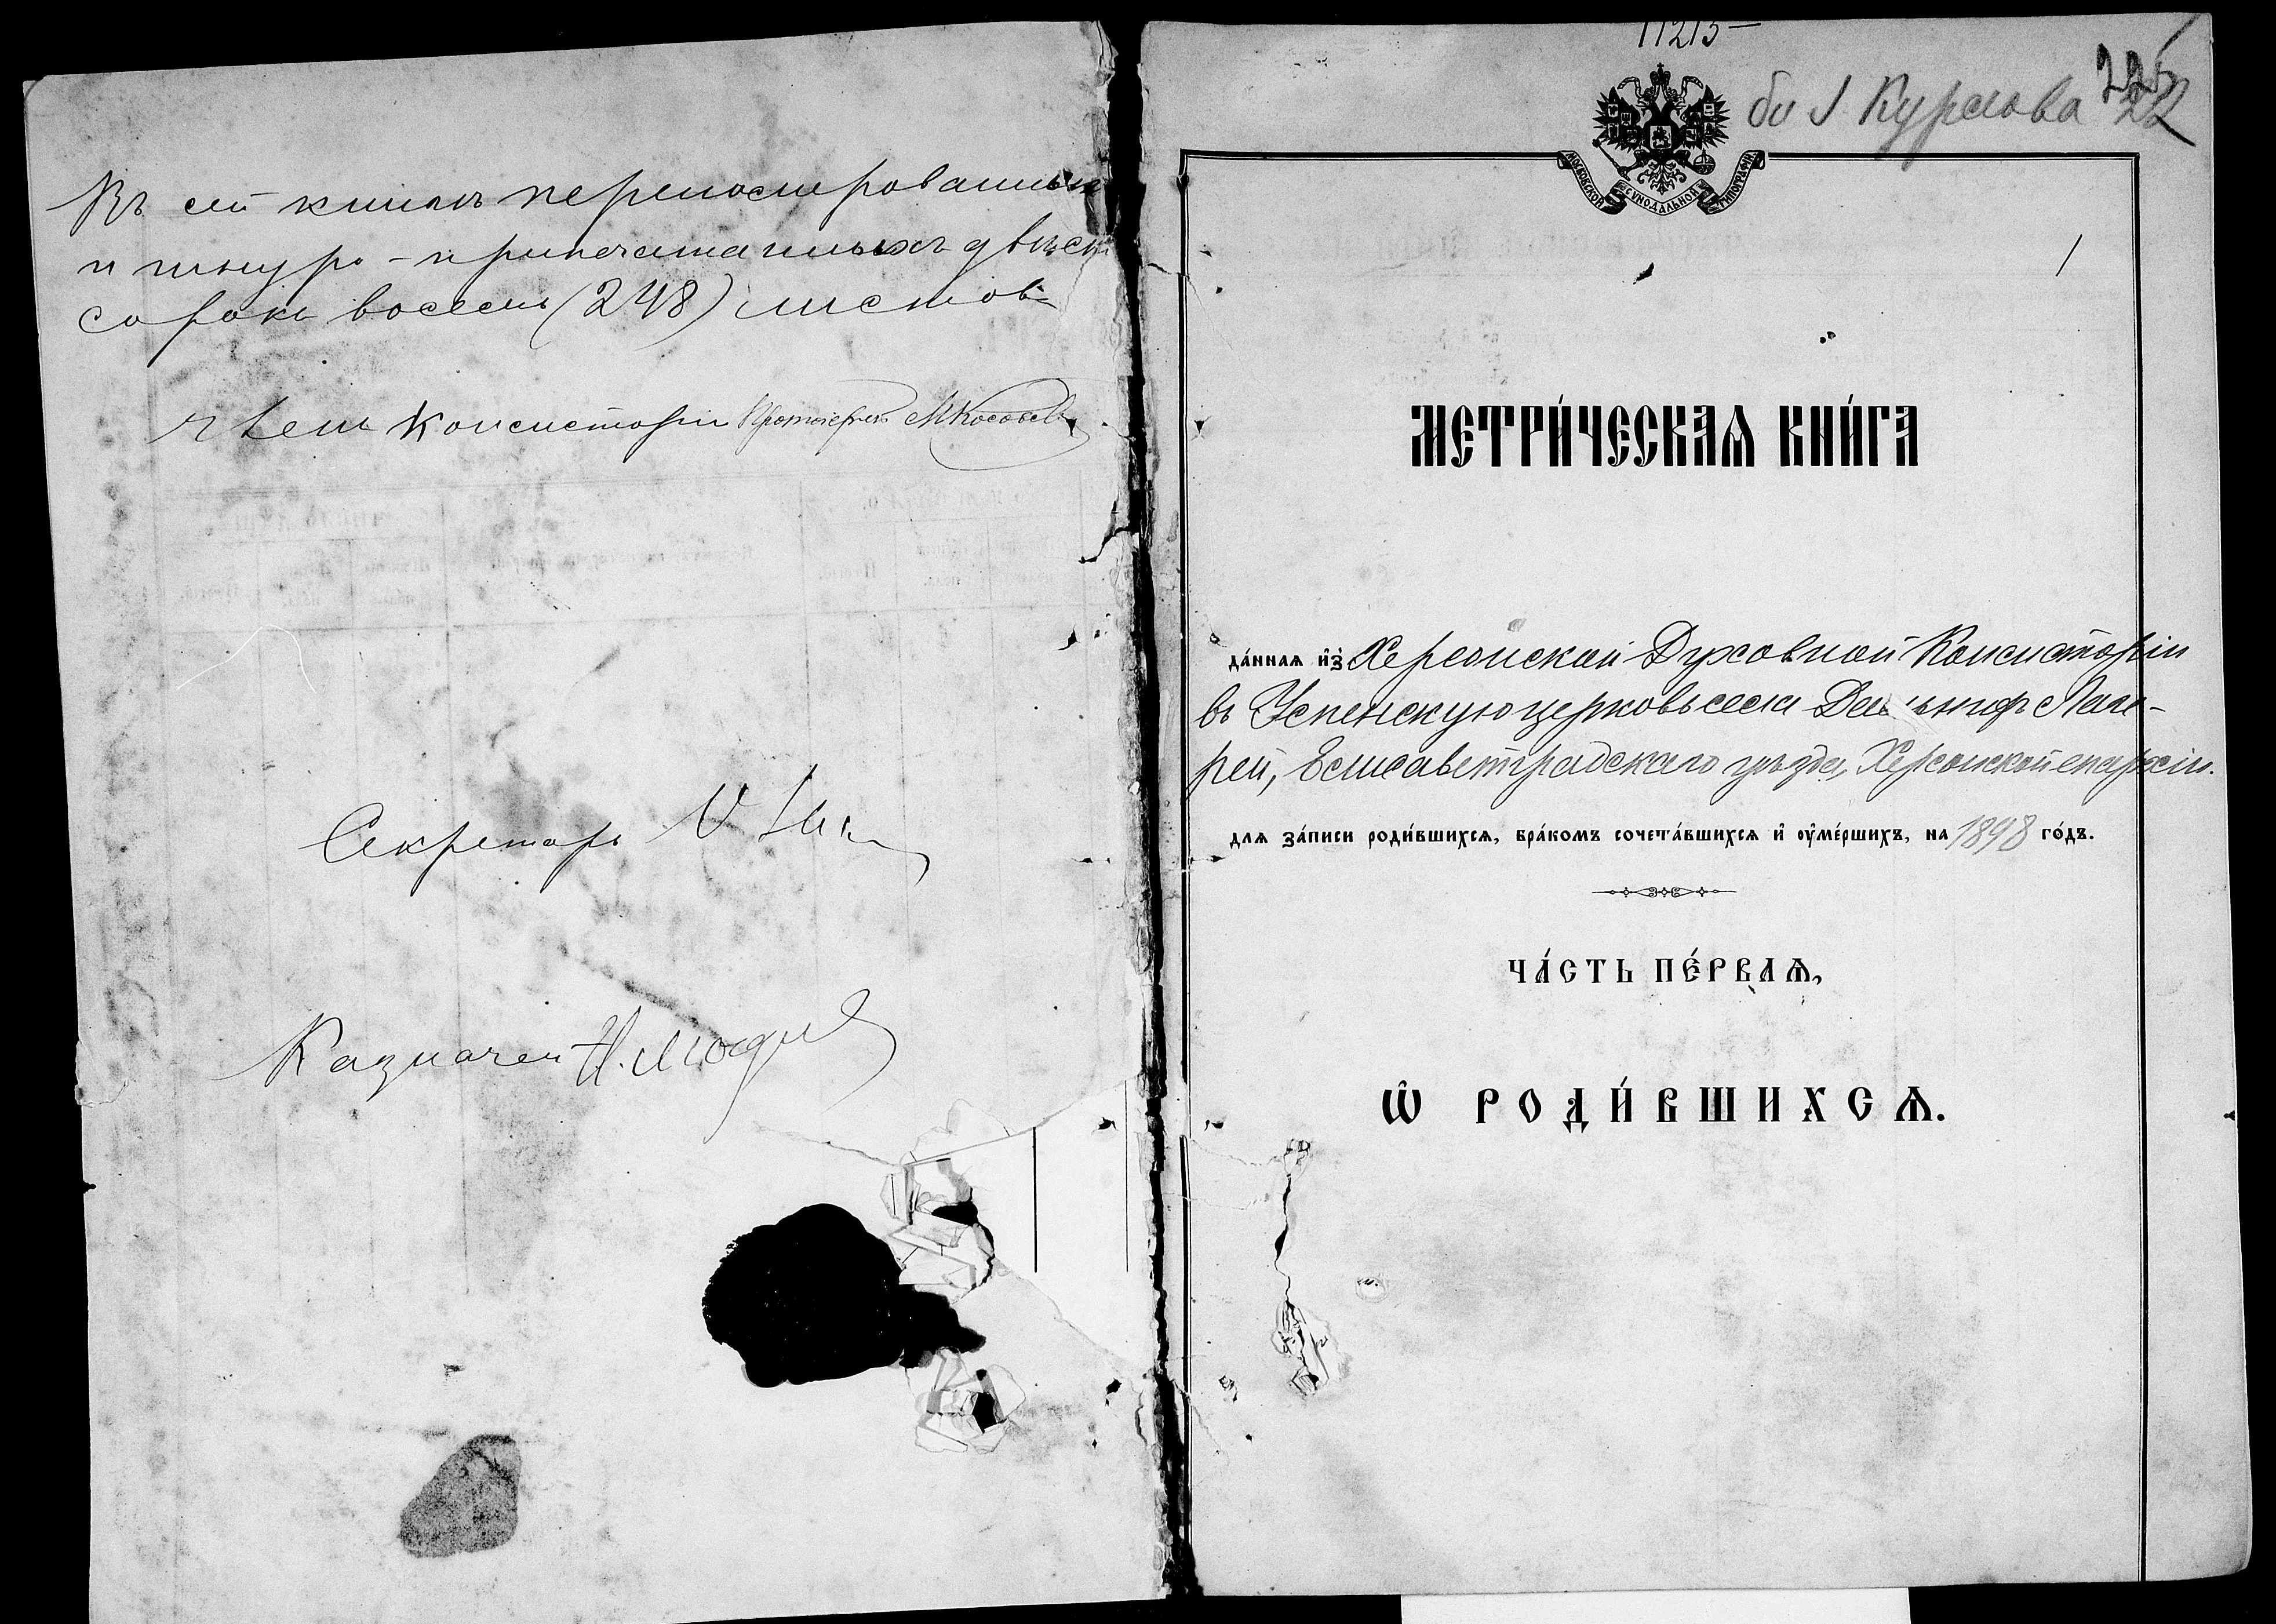 Въ сей книгѣ перенумерованныхъ
и шнуро-припечатанныхъ двѣсти
сорокъ восемь (248) листовъ
Членъ Консисторіи Протоіерей
Секретарь
Казначей Н.
11213 –
225
22
МОСКОВСКОЙ СѴНОДАЛЬНОЙ ТИПОГРАФІИ
1
МЕТРИ́ЧЕСКАѦ КНИ́ГА
да́ннаѧ и҆з̾ Херсонской Духовной Консисторіи
въ Успенскую церковь села Лаге-
рей, Елисаветградскаго уѣзда, Херсонской епархіи.
для за́писи роди́вшихсѧ, бра́комъ сочета́вшихсѧ и҆ ᲂу҆ме́ршихъ, на 1898 го́дъ.
ЧА́СТЬ ПЕ́РВАѦ,
Ѡ҆ РОДИ́ВШИХСѦ.